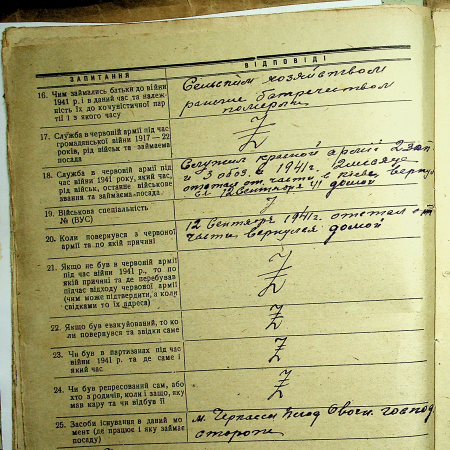 ЗАПИТАННЯ
ВІДПОВІДІ
16. Чим займались батьки до війни
1941 р. і в даний час та належ-
ність їх до комуністичної пар-
тії і з якого часу
Сельским хозяйством
раньше
померли
17. Служба в червоній армії під час
громадянської війни 1917—22
років, рід військ та займаєма
посада
Z
18. Служба в червоній армії під
час війни 1941 року, який час,
рід військ, останнє військове
звання та займаєма посада.
Служил красной армии 2 зап
и 3 обоз. в 1941г. 2 месяца
отстал от части в верну
12 Сентября 41 домой
19. Військова спеціальність
№ (ВУС)
Z
20. Коли повернувся з червоної
армії та по якій причині
12 Сентябрь 1941г. отстал от
части вернулся домой
21. Якщо не був в червоній армії
під час війни 1941 р., то по
якій причині та де перебував
підчас відходу червоної армії
(чим може підтвердити, а коли
свідками то їх адреса)
Z
22. Якщо був евакуйований, то ко-
ли повернувся та звідки саме
Z
23. Чи був в партизанах під час
війни 1941 р. та де саме і
який час
Z
24. Чи був репресований сам, або
хто з родичів, коли і защо, яку
мав кару та чи відбув її
Z
25. Засоби існування в даний мо-
мент (де працює і яку займає
посаду)
м. Черкассы
сторож